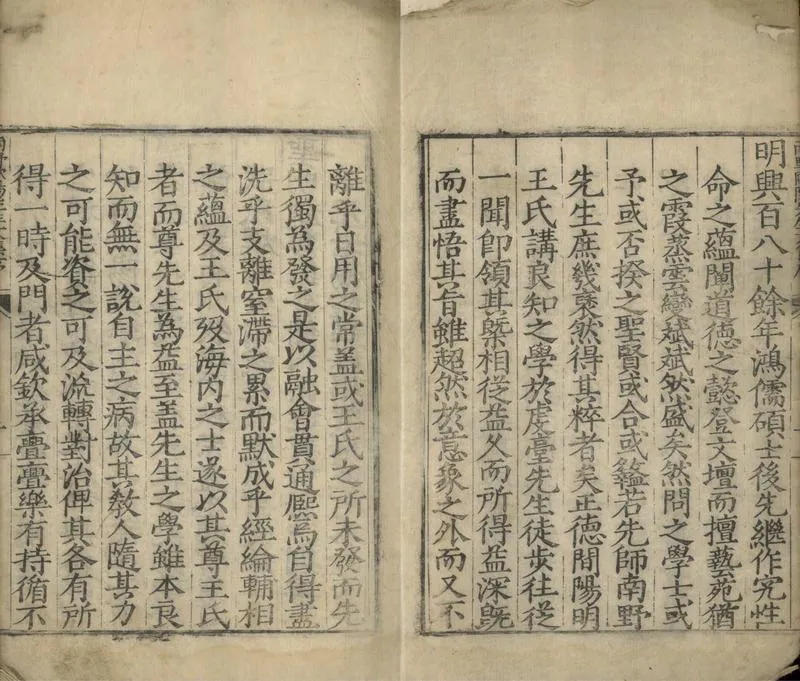 明興百八十餘年鴻儒碩士後先繼作究性
命之蘊闡道德之懿登文壇而擅藝苑猶
之霞蒸雲變斌斌然盛矣然問之學士或
予或否揆之聖賢或合或盭若先師南野
先生庶幾褎然得其粹者矣正德間陽明
王氏講良知之學於虔臺先生徒步往從
一聞即領其槩相從益久而所得益深既
而盡悟其旨雖超然於意象之外而又不
離乎日用之常盖或王氏之所未發而先
生獨為發之是以融會貫通焉自得盡
洗乎支離窒滯之累而默成乎經綸輔相
之蘊及王氏歿海内之士遂以其尊王氏
者而尊先生為益至盖先生之學雖本良
知而無一說自主之病故其教人隨其力
之可能資之可及流轉對治俾其各有所
得一時及門者咸欽承亹亹樂有持循不